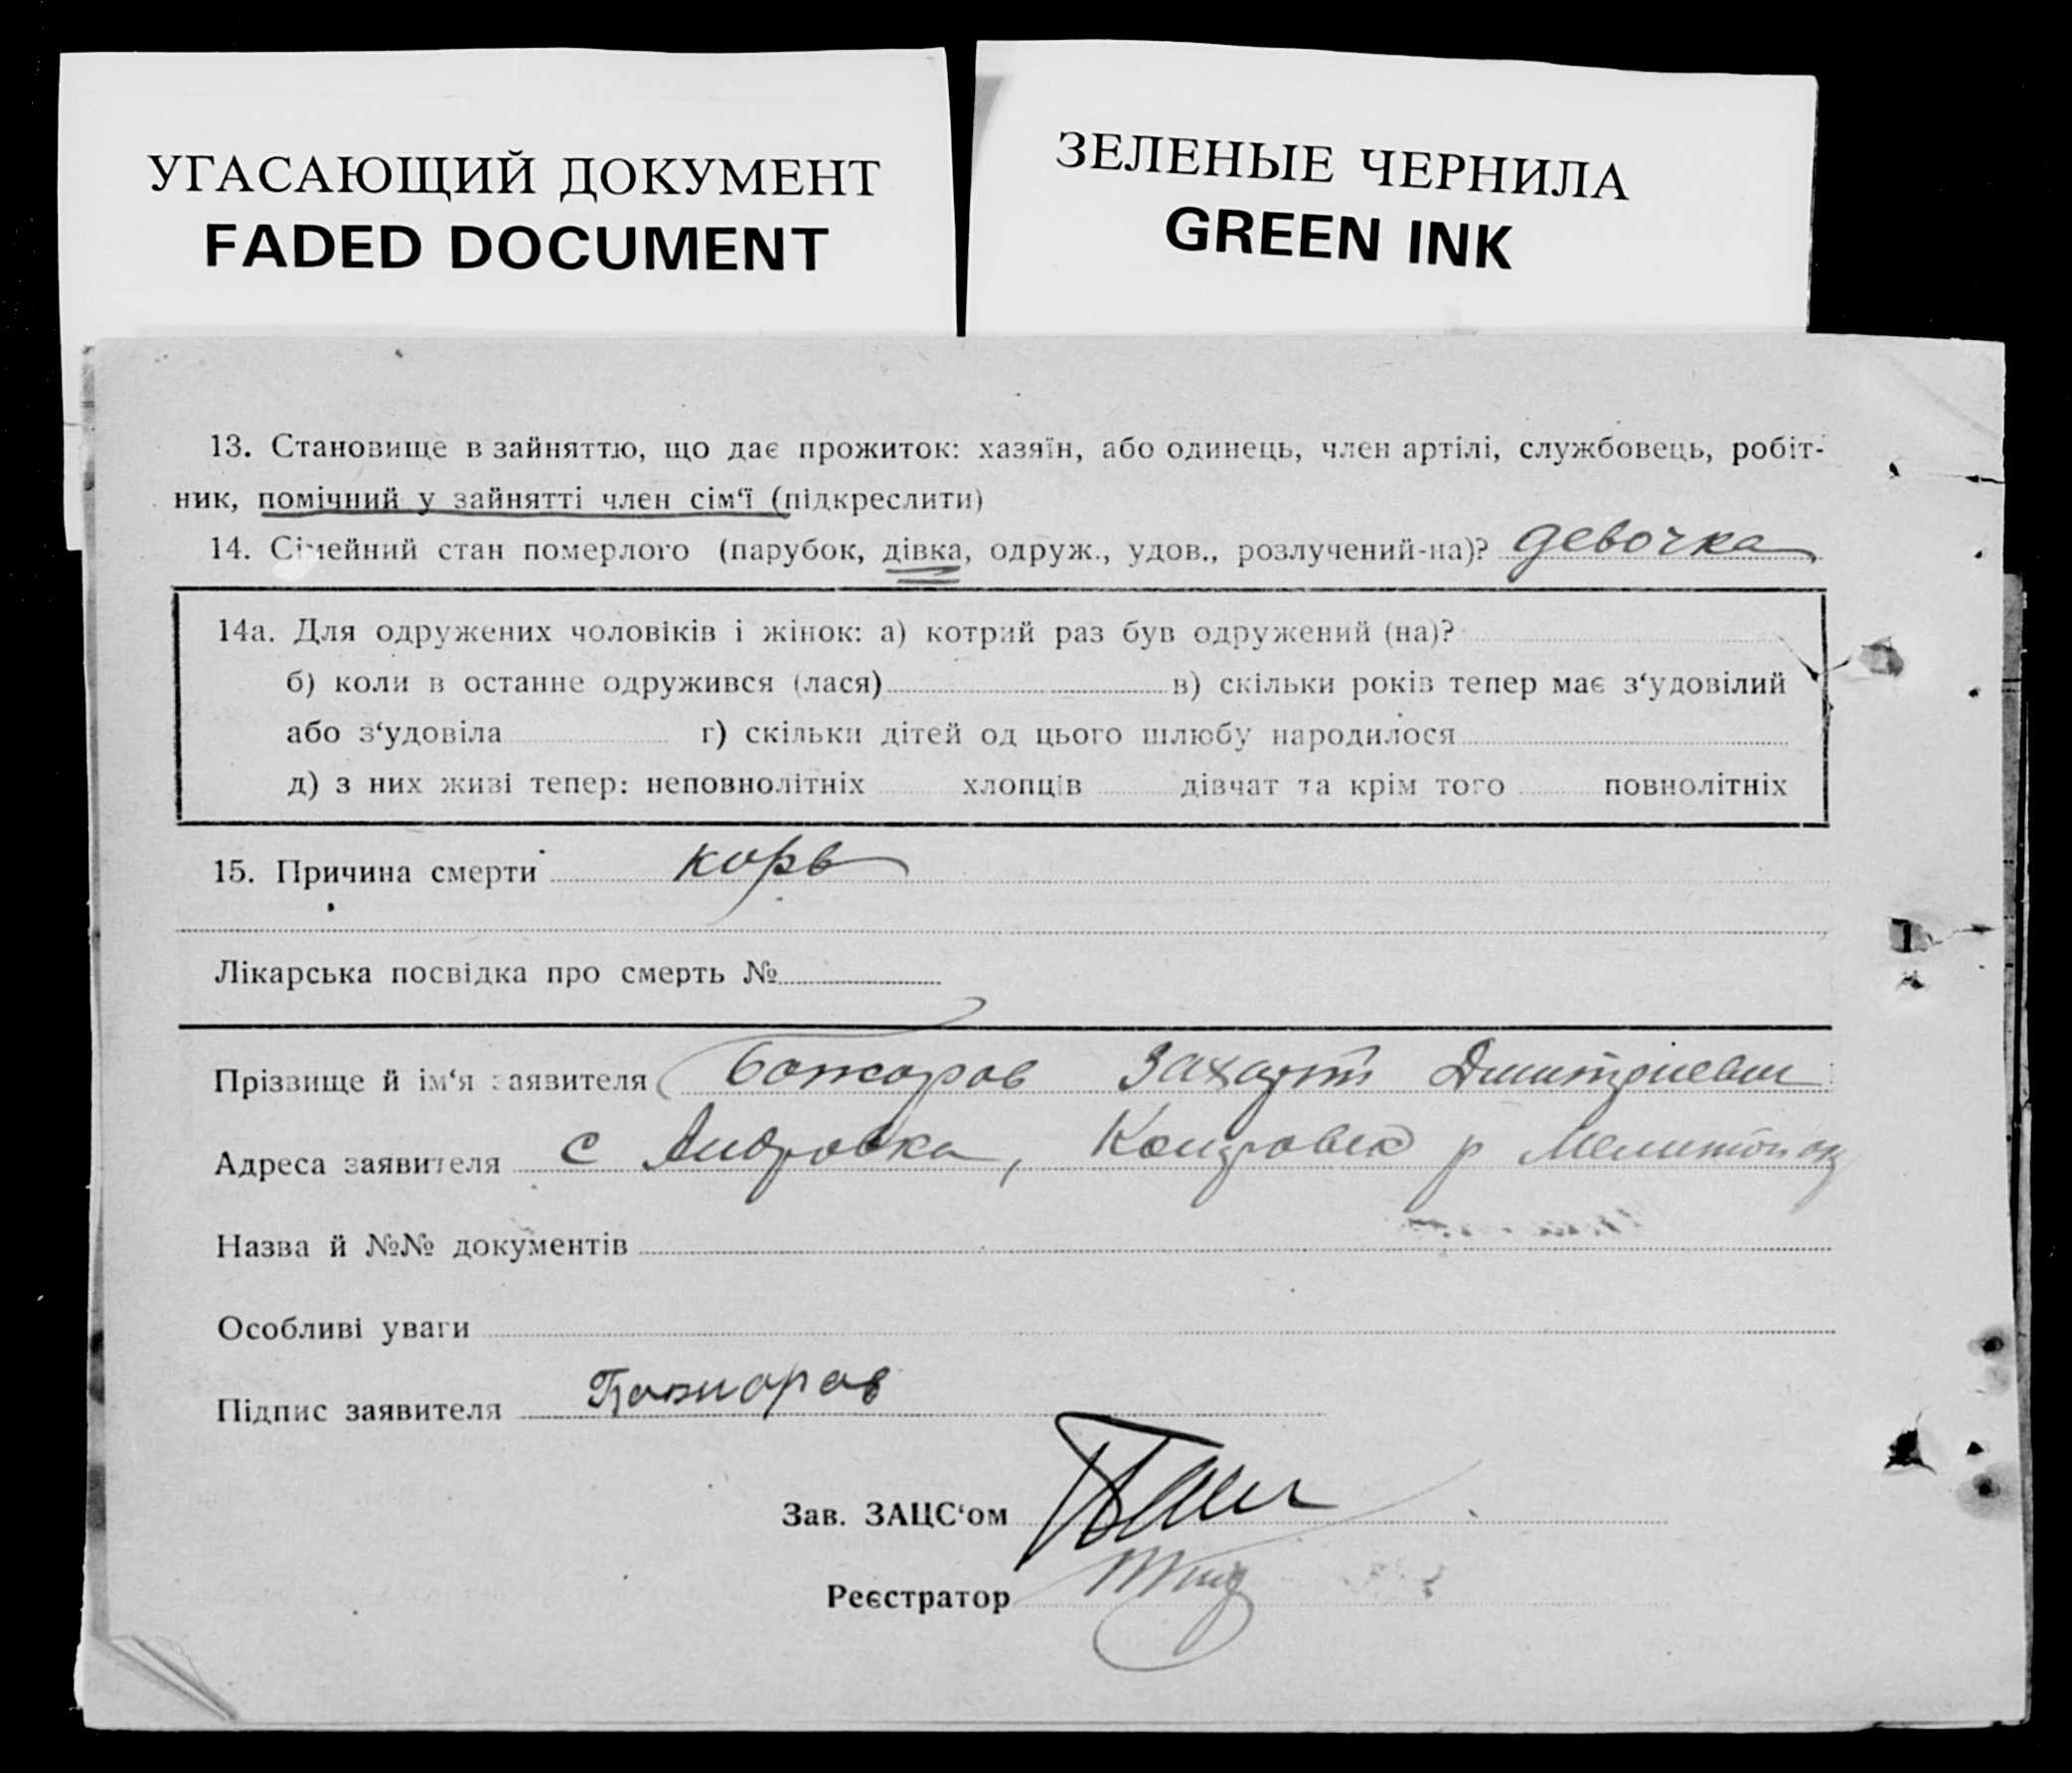 УГАСАЮЩИЙ ДОКУМЕНТ
FADED DOCUMENT
ЗЕЛЕНЫЕ ЧЕРНИЛА
GREEN INK
13. Становище в зайняттю, що дає прожиток: хазяїн, або одинець, член артілі, службовець, робіт-
ник, помічний у зайнятті член сім‘ї (підкреслити)
14. Сімейний стан померлого (парубок, дівка, одруж., удов., розлучений-на)? девочка
14а. Для одружених чоловіків і жінок: а) котрий раз був одружений (на)?
б) коли в останнє одружився (лася) в) скільки років тепер має з‘удовілий
або з‘удовіла г) скільки дітей од цього шлюбу народилося
д) з них живі тепер: неповнолітніх хлопців дівчат та крім того повнолітніх
15. Причина смерти корь
Лікарська посвідка про смерть №
Прізвище й ім‘я заявителя Божоров Дмитриевич
Адреса заявителя с Андровка, р
Назва й №№ документів
Особливі уваги
Підпис заявителя Божоров
Зав. ЗАЦС‘ом
Реєстратор